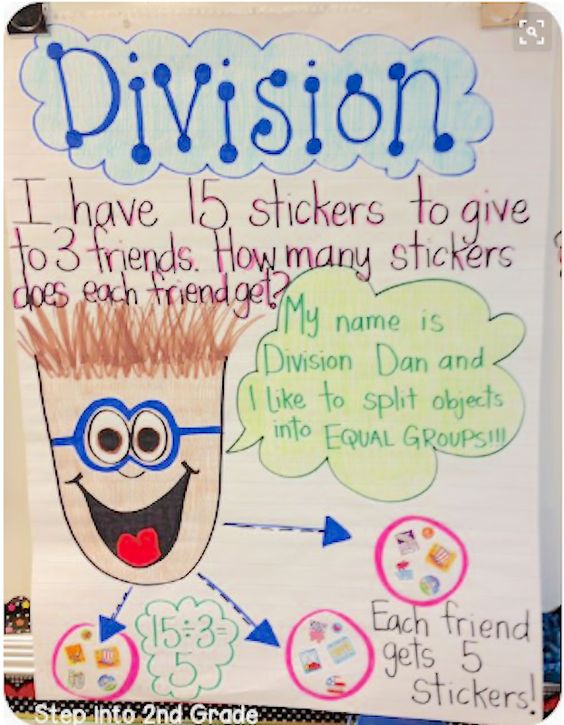 Division
I have 15 stickers to give
to 3 friends. How many stickers
does each friend get?
My name is
Division Dan and
I like to split objects
into EQUAL GROUPS!!!
15÷3=
5
Each friend
gets 5
stickers!
Step into 2nd Grade